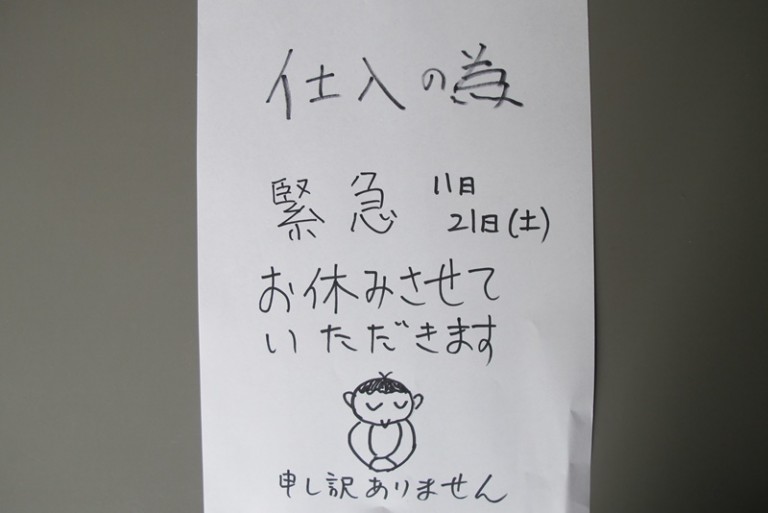 仕入の為
緊急
11日
21日(土)
お休みさせて
いただきます
申し訳ありません